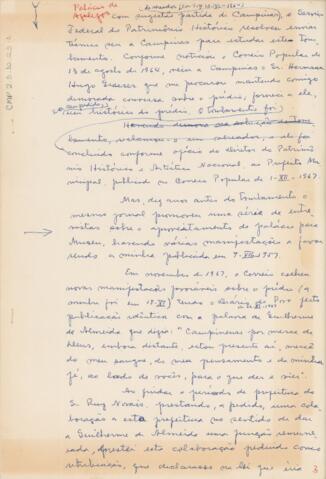 Palácio dos
Azulejos
Com sugestão partida de Campinas, o Serviço
Federal do Patrimônio Histórico resolveu enviar
técnico seu a Campinas para estudar este tom-
bamento. Conforme noticia o Correio Popular de
18 de agosto de 1964, veio a Campinas o Sr. Hermann
Hugo Graeser que me procurou mantendo comigo
demorada conversa sobre o prédio, forneci a ele,
o histórico do prédio. O tombamento foi
Havendo demora na solução do tom-
bamento, e ele foi
concluído conforme ofício do diretor do Patrimô-
nio Histórico e Artístico Nacional, ao Prefeito Mu-
nicipal, publicado no Correio Popular de 1-XII-1967.
Mas, dez anos antes do tombamento o
mesmo jornal promoveu uma série de entre-
vistas sobre o aproveitamento do palácio para
Museu, havendo várias manifestações a favor
sendo a minha publicada em 7-VII-1957.
Em novembro de 1967, o Correio colheu
novas manifestações favoráveis sobre o prédio (a
minha foi em 18-XI) tendo o Diário do Povo feito
publicação idêntica com a palavra de Guilherme
de Almeida que dizia: "Campineiro por mercê de
Deus, embora distante, estou presente aí, mercê
do meu sangue, do meu pensamento e da minha
fé, ao lado de vocês, para o que der e vier."
Ao findar o período de prefeitura do
Sr. Ruy Novais, prestando, a pedido, uma cola-
boração a esta prefeitura no sentido de dar
a Guilherme de Almeida uma função remune-
rada, prestei esta colaboração pedindo como
retribuição, que declarasse na lei que iria
3